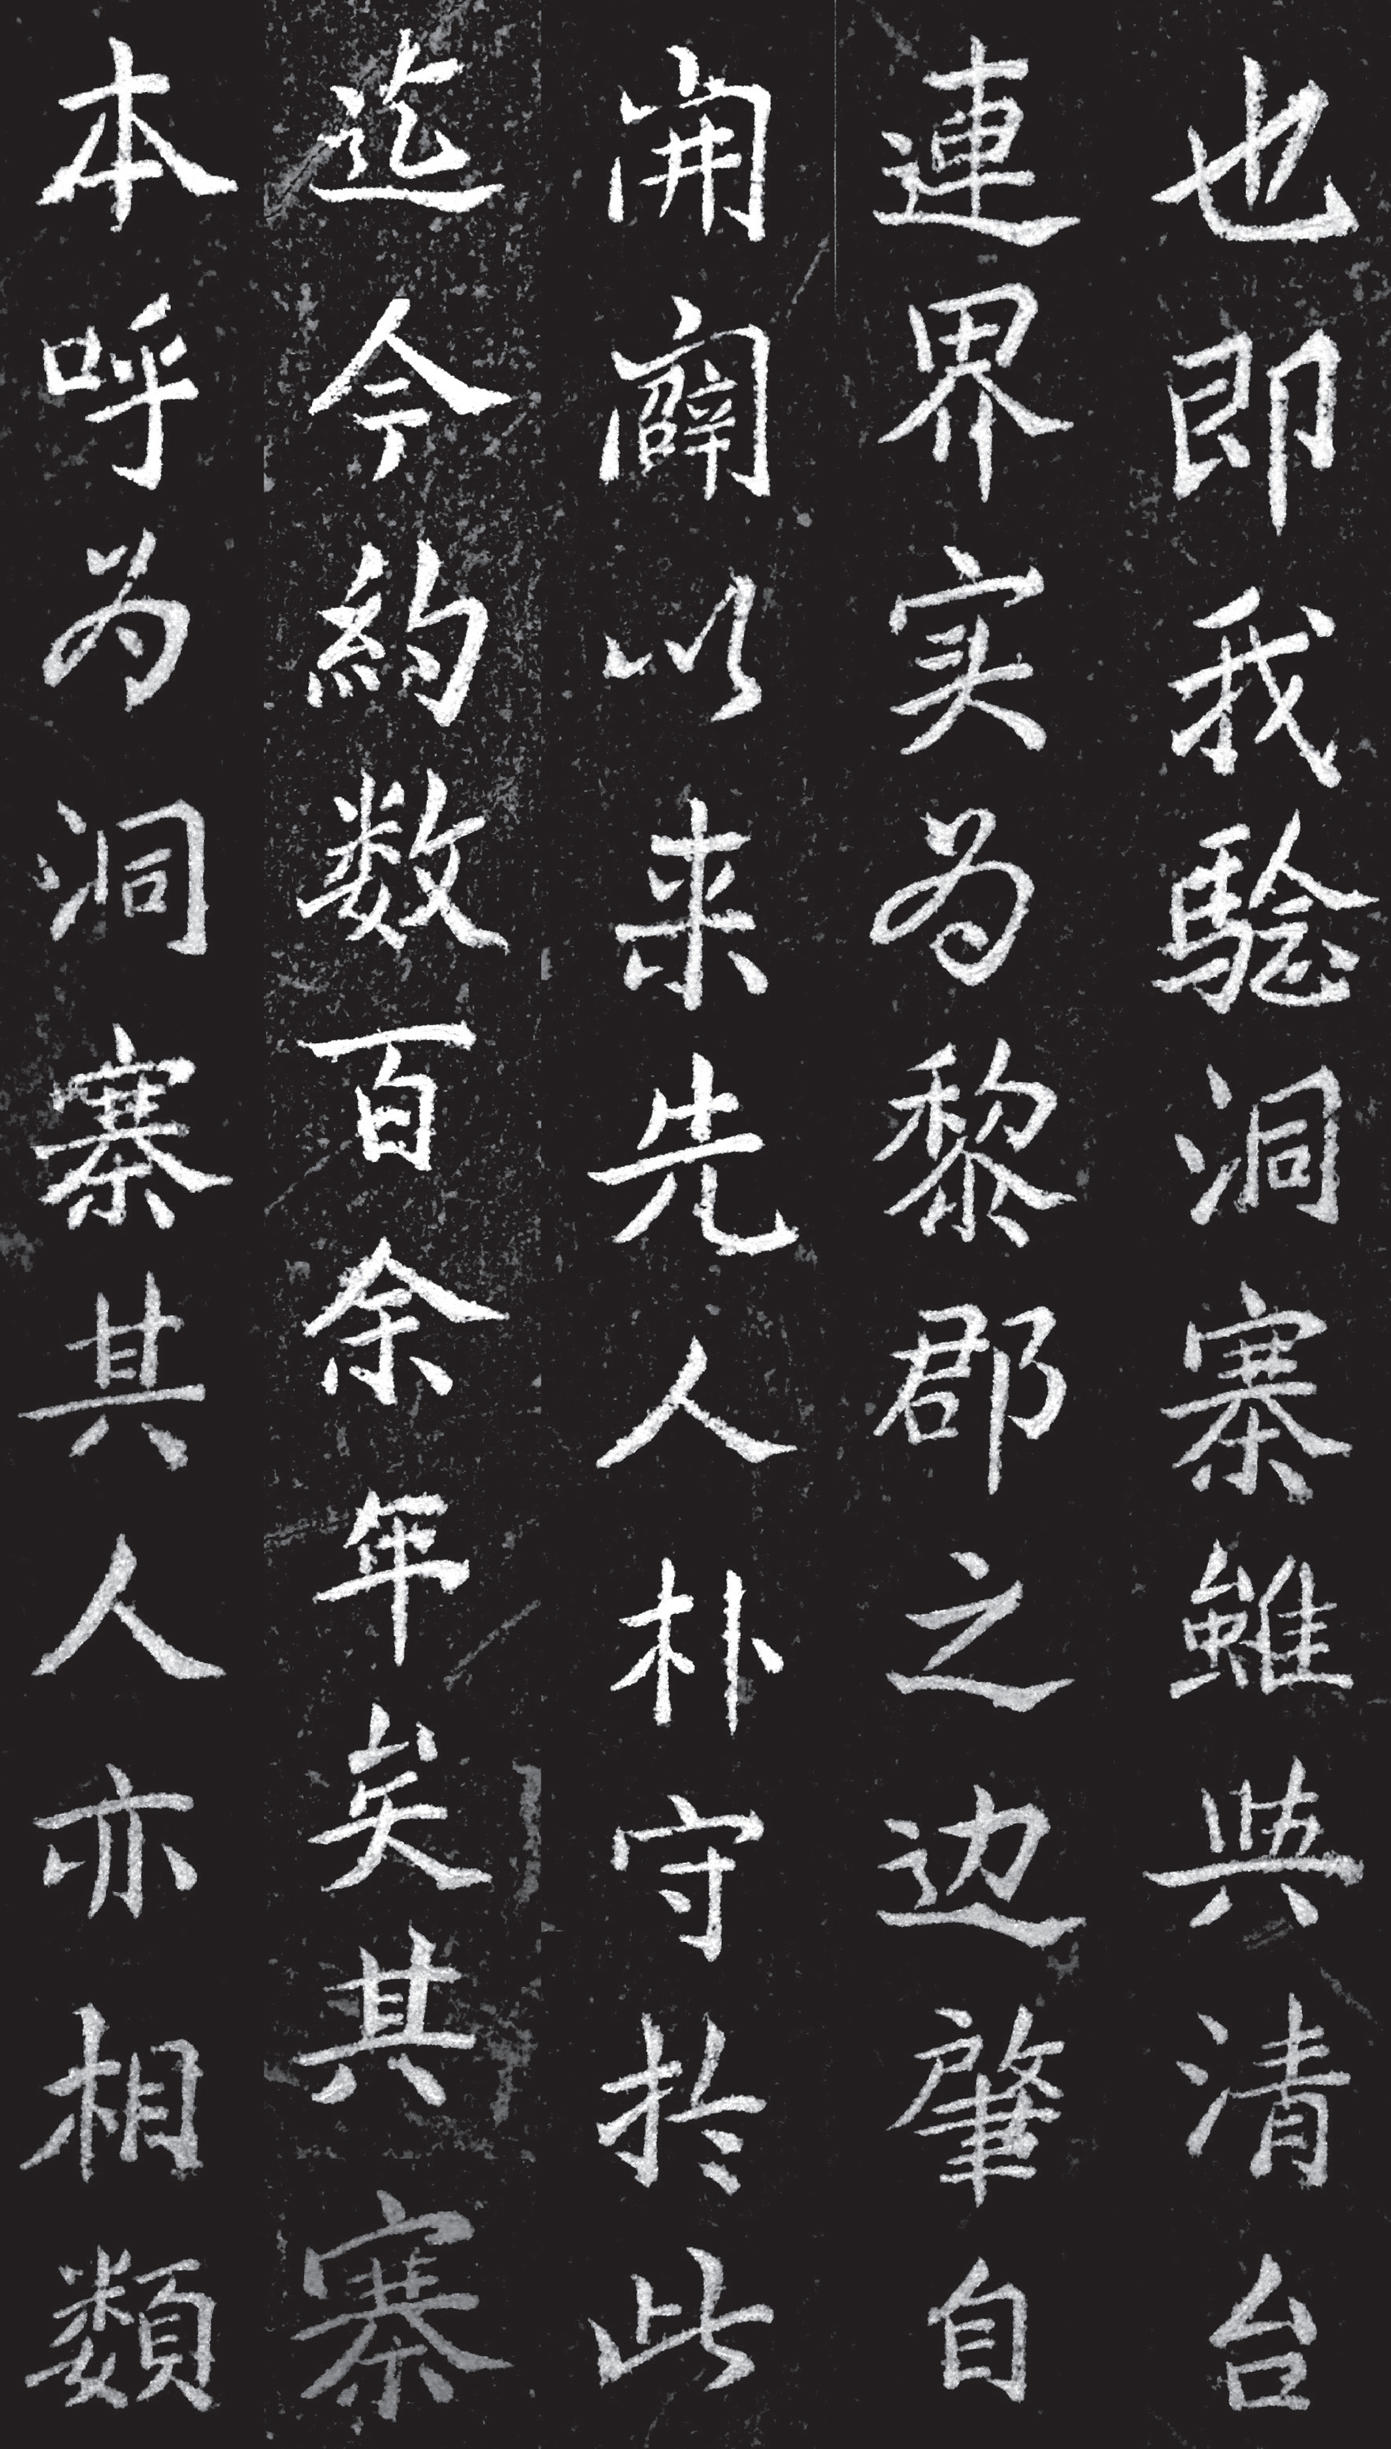 也即我騐洞寨雖與清台
連界实为黎郡之边肇自
開闢以来先人朴守於此
迄今約数百余年矣其寨
本呼为洞寨其人亦相類